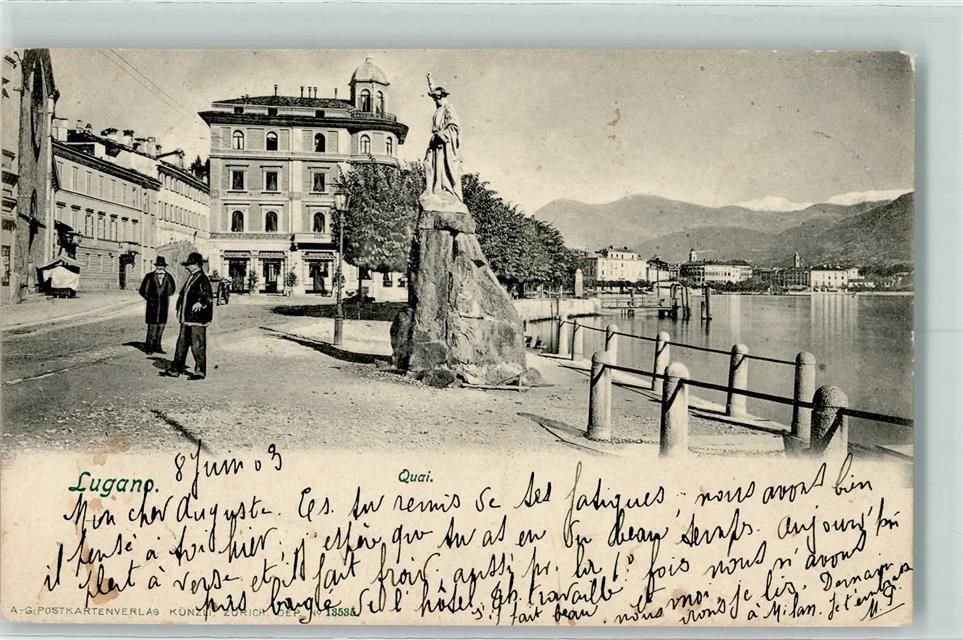 Lugano.
Quai.
8 Juin 03
Mon cher Auguste. Es, tu remis de tes fatigues, nous avons bien
pensé à toi hier, j'espère que tu as eu du beau temps. Aujourd'hui
il pleut à verse et il fait froid, aussi pr. la 1º fois nous n'avons
pas bougé de l'hôtel, on travaille moi je lis. Demain
s'il fait beau nous irons à Milan. Je t'embrasse
M. G
A-G. POSTKARTENVERLAG KÜNZLI, ZÜRICH DEP. No 13535